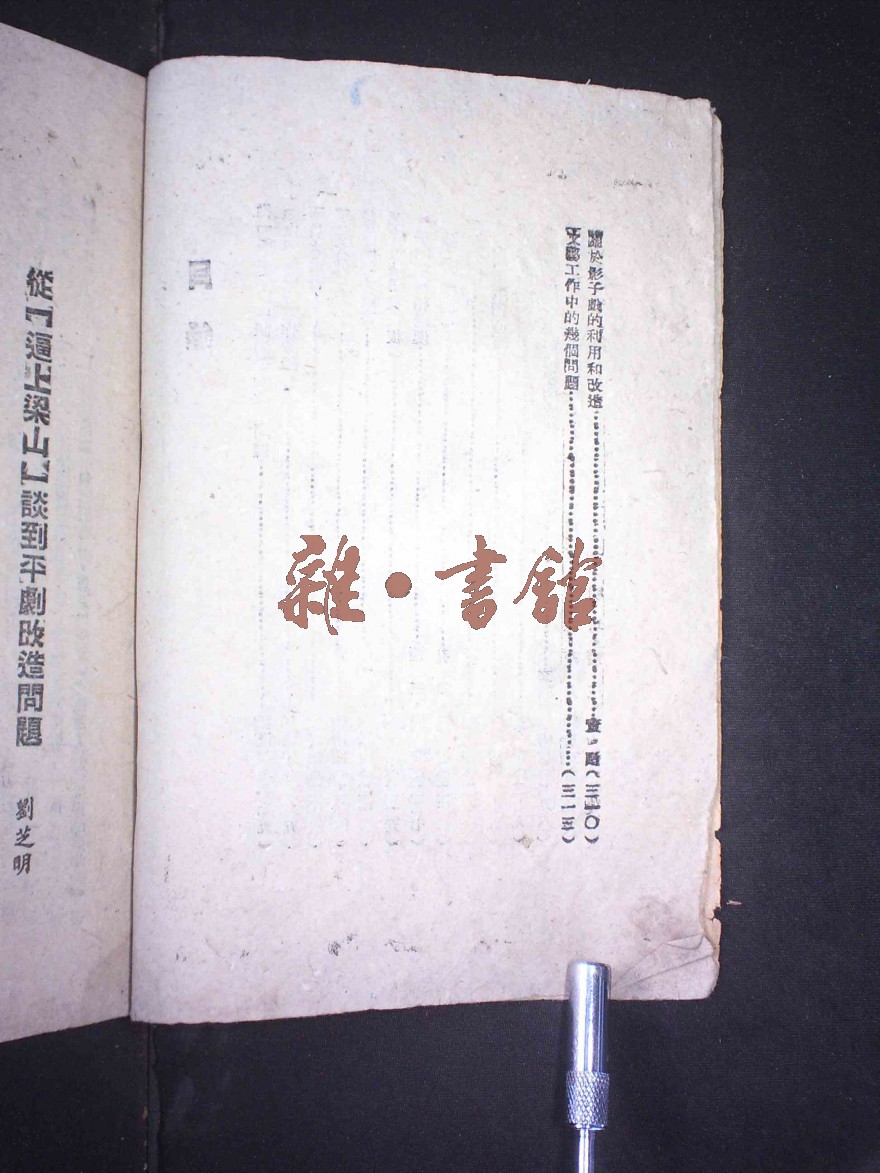 關於影子戲的利用和改造……
文藝工作中的幾個問題……(三一五)
目錄
從『逼上梁山』談到平劇改造問題
劉芝明
雜·書館